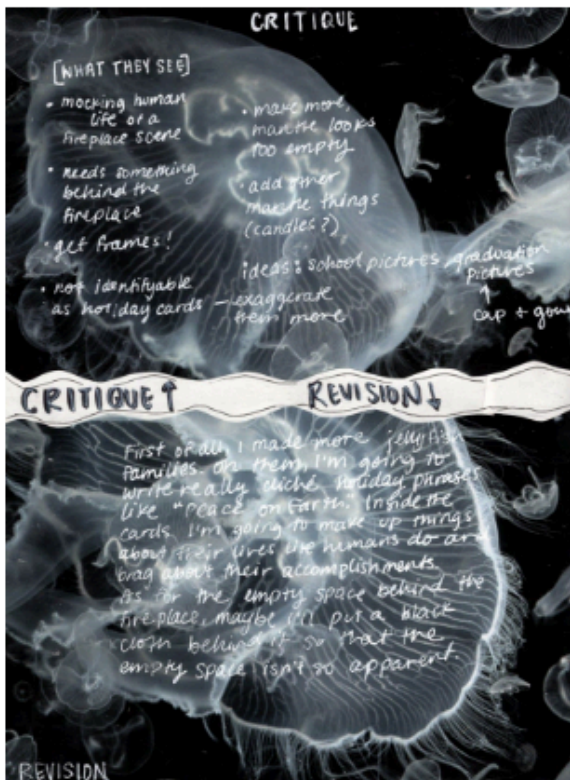 CRITIQUE
[WHAT THEY SEE]
• mocking human
life of a
fireplace scene
• needs something
behind the
fireplace
• get frames!
• not identifyable
as holiday cards – exaggerate
them more
• make more,
mantle looks
too empty
• add other
mantle things
(candles?)
ideas: school pictures, graduation
pictures
↑
cap + gown
CRITIQUE↑ REVISION↓
First of all I made more jellyfish
families. On them, I'm going to
write really cliché holiday phrases
like "Peace on Earth." Inside the
cards I'm going to make up things
about their lives like humans do and
brag about their accomplishments.
As for the empty space behind the
fireplace, maybe I'll put a black
cloth behind it so that the
empty space isn't so apparent.
REVISION